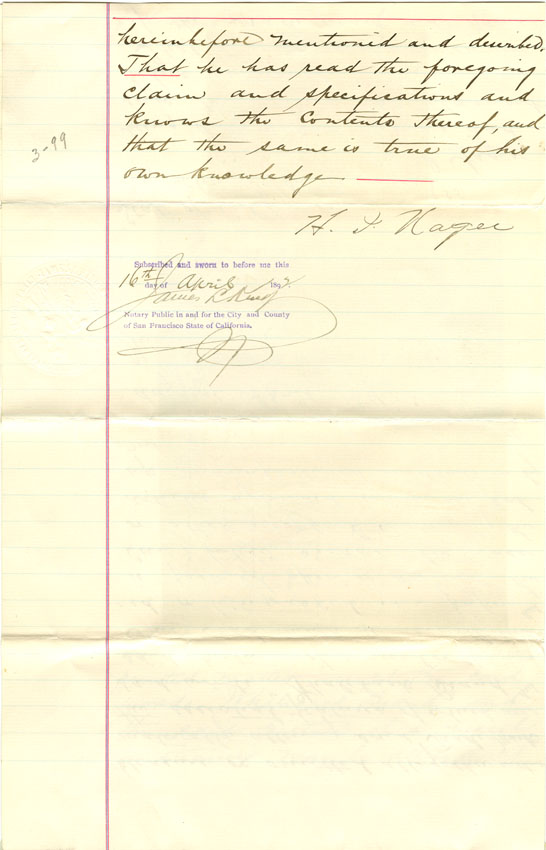 hereinbefore mentioned and described.
That he has read the foregoing
claim and specifications and
knows the Contents thereof, and
that the same is true of his
own knowledge
3-99
H. F. Nagel
Subscribed and sworn to before me this
16th day of April 1892
James L. King
Notary Public in and for the City and County
of San Francisco State of California.